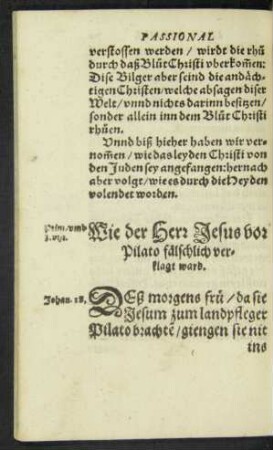 PASSIONAL
verstossen werden / wirdt die rhů
durch daß Blůt Christi vberkom̃en:
Dise Bilger aber seind die andäch-
tigen Christen / welche absagen diser
Welt / vnnd nichts darinn besitzen /
sonder allein inn dem Blůt Christi
rhůen.
Vnnd biß hieher haben wir ver-
nom̃en / wie das leyden Christi von
den Juden sey angefangen: hernach
aber volgt / wie es durch die Heyden
volendet worden.
Wie der Herr Jesus vor
Pilato fälschlich ver-
klagt ward.
Johan. 18.
DEß morgens frů / da sie
Jesum zum landpfleger
Pilato brachtẽ / giengen sie nit
ins